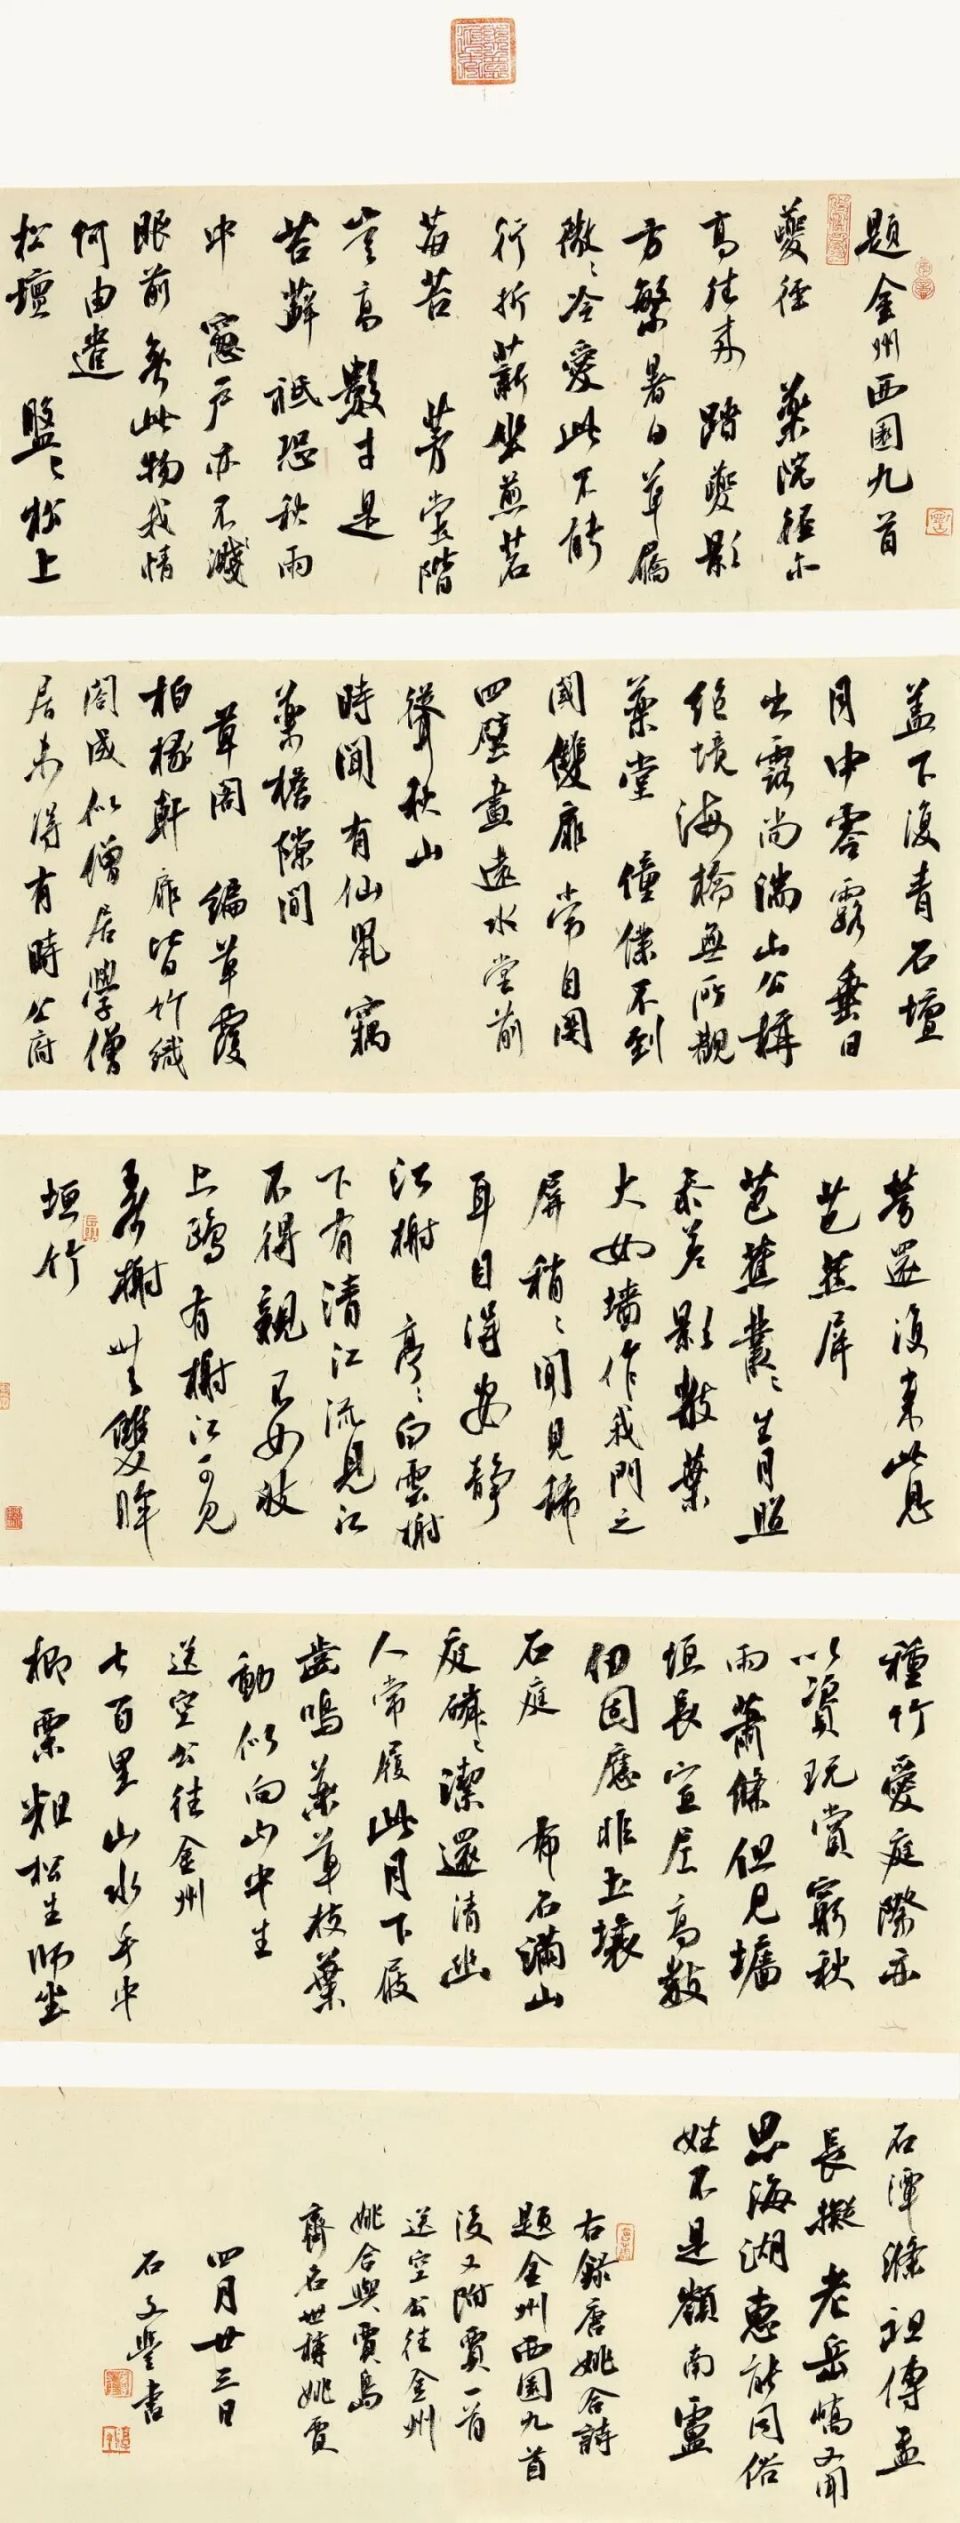 題金州西園九首
葼徑 藥院徑亦
高往來踏葼影
方繁暑日草屩
微々冷愛此不能
行折薪坐煎茗
莓苔 芳堂階
豈高數寸是
苔蘚祇恐秋雨
中窓戶亦不濺
眼前無此物我情
何由遣
松壇 盤々松上
盖下復青石壇
月中零露垂日
出露尚漙山公稱
絕境海橋無所觀
藥堂 僮僕不到
閾雙扉常自関
四壁畫遠水堂前
聳秋山
時聞有仙鼠竊
藥檐隙間
草閣 編草覆
柏椽軒扉皆竹織
閣成似僧居學僧
居未得有時公府
勞還復來此息
芭蕉屏
芭蕉叢々生月照
參差影數葉
大如墻作我門之
屏稍々聞見稀
耳目得安靜
江榭 亭々白雲榭
下有清江流見江
不得親不如波
上鷗有榭江可見
無榭無雙眸
垣竹
種竹愛庭際亦
以資玩賞窮秋
雨蕭條但見墻
垣長宣尼高數
仞固應非土壤
石庭 布石滿山
庭磷々潔還清幽
人常履此月下屐
齒鳴藥草枝葉
動似向山中生
送空公往金州
七百里山水手中
榔栗粗松生師坐
石潭滌祖傳盂
長擬老岳嶠又聞
思海湖惠能同俗
姓不是嶺南盧
右錄唐姚合詩
題金州西園九首
後又附賈一首
送空公往金州
姚合與賈島
齊名世稱姚賈
四月廿三日
石文豐書